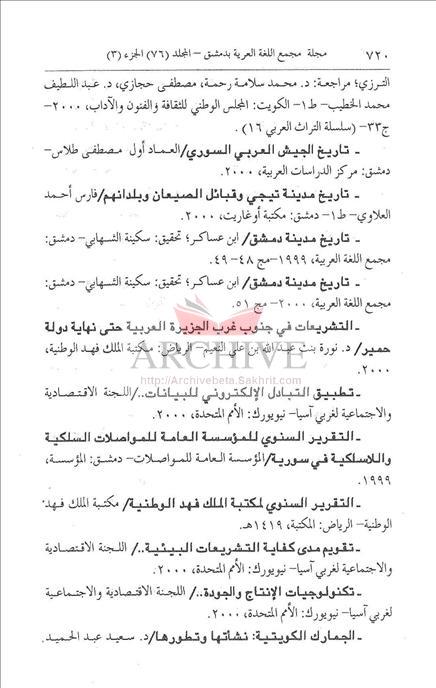 ٧٢٠ مجلة مجمع اللغة العربية بدمشق – المجلد (٧٦) الجزء (٣)
الترزي؛ مراجعة: د. محمد سلامة رحمة، مصطفى حجازي، د. عبد اللطيف
محمد الخطيب- ط١- الكويت: المجلس الوطني للثقافة والفنون والآداب، ٢٠٠٠-
ج٣٣- (سلسلة التراث العربي ١٦).
ـ تاريخ الجيش العربي السوري/العماد أول مصطفى طلاس-
دمشق: مركز الدراسات العربية، ٢٠٠٠.
ـ تاريخ مدينة تيجي وقبائل الصيعان وبلدانهم/فارس أحمد
العلاوي- ط١- دمشق: مكتبة أوغاريت، ٢٠٠٠.
ـ تاريخ مدينة دمشق/ ابن عساكر؛ تحقيق: سكينة الشهابي- دمشق:
مجمع اللغة العربية، ١٩٩٩-مج ٤٨- ٤٩.
ـ تاريخ مدينة دمشق/ ابن عساكر؛ تحقيق: سكينة الشهابي- دمشق:
مجمع اللغة العربية، ٢٠٠٠- مج ٥١.
ـ التشريعات في جنوب غرب الجزيرة العربية حتى نهاية دولة
حمير/ د. نورة بنت عبد الله بن علي النعيم- الرياض: مكتبة الملك فهد الوطنية،
٢٠٠٠.
ARCHIVE
http://Archivebeta.Sakhrit.com
ـ تطبيق التبادل الإلكتروني للبيانات../اللجنة الاقتصادية
والاجتماعية لغربي آسيا- نيويورك: الأمم المتحدة، ٢٠٠٠.
ـ التقرير السنوي للمؤسسة العامة للمواصلات السلكية
واللاسلكية في سورية/المؤسسة العامة للمواصلات- دمشق: المؤسسة،
١٩٩٩.
ـ التقرير السنوي لمكتبة الملك فهد الوطنية/ مكتبة الملك فهد
الوطنية- الرياض: المكتبة، ١٤١٩هـ.
ـ تقويم مدى كفاية التشريعات البيئية../ اللجنة الاقتصادية
والاجتماعية لغربي آسيا- نيويورك: الأمم المتحدة، ٢٠٠٠.
ـ تكنولوجيات الإنتاج والجودة../ اللجنة الاقتصادية والاجتماعية
لغربي آسيا- نيويورك: الأمم المتحدة، ٢٠٠٠.
ـ الجمارك الكويتية: نشأتها وتطورها/د. سعيد عبد الحميد.